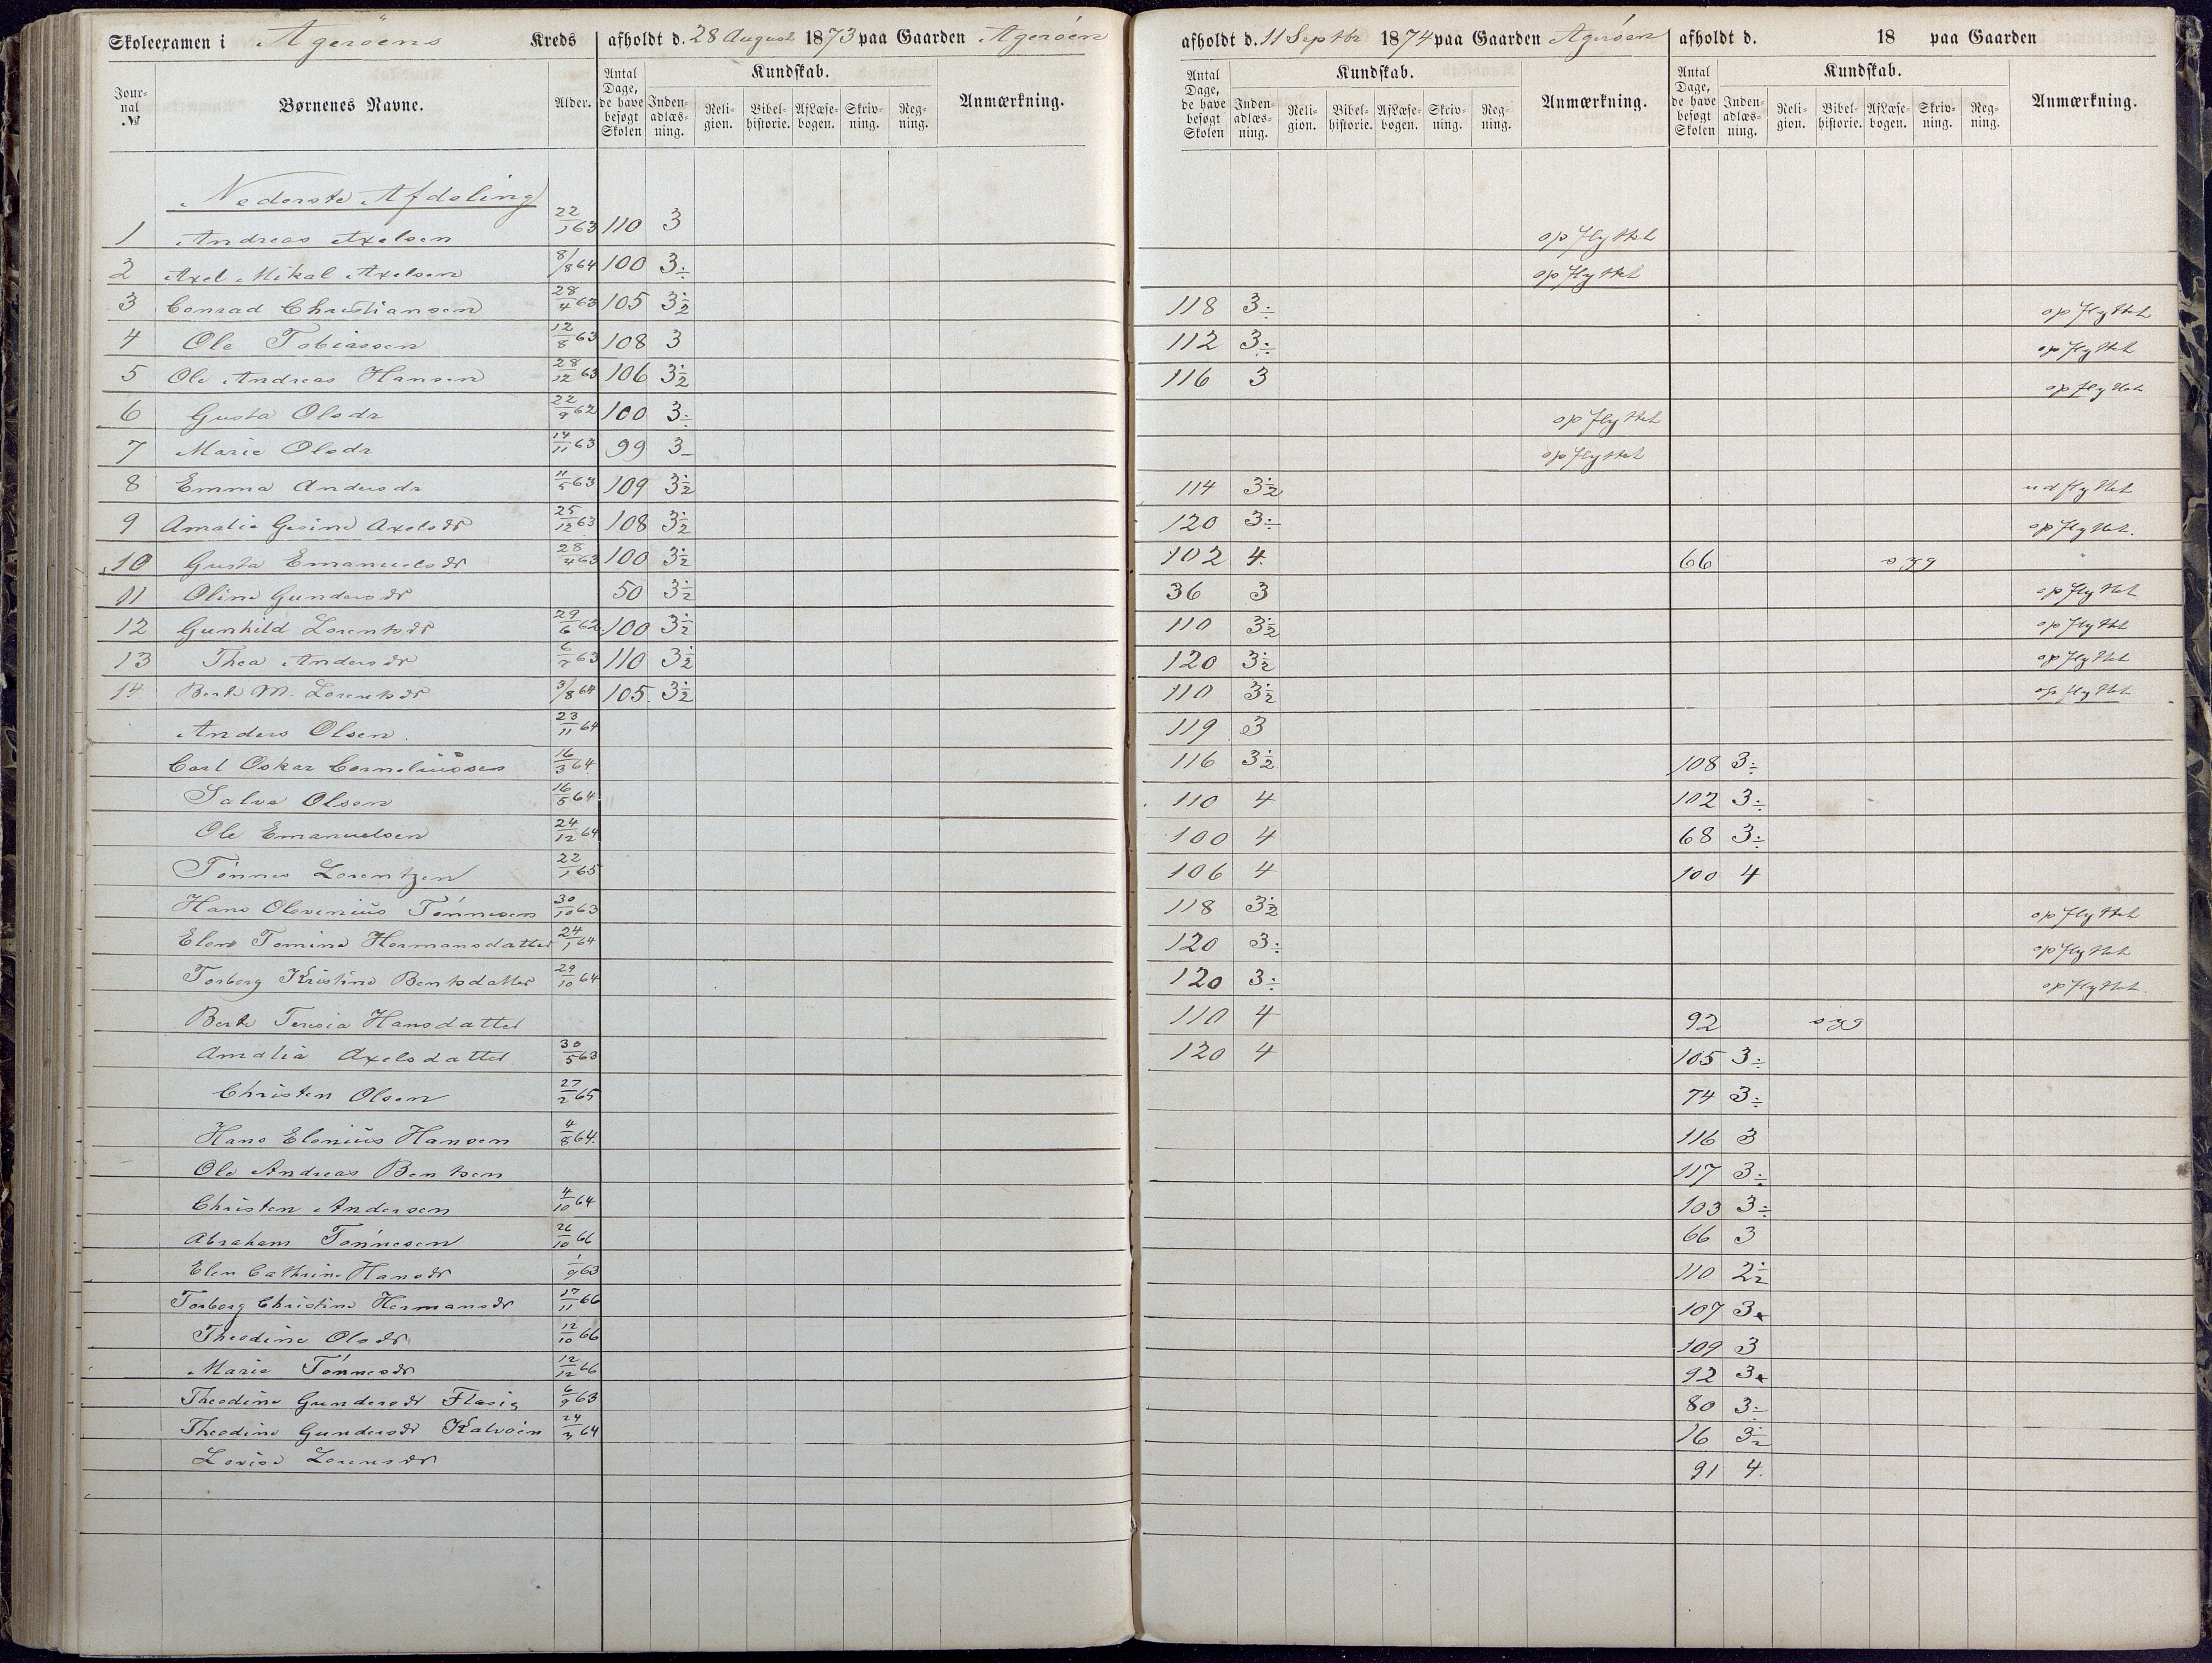 Skoleexamen i Ageröens Kreds afholdt d. 28 August 1873 paa Gaarden Ageröen afholdt d. 11 Septbr 1874 paa Gaarden Ageröen afholdt d. 18 paa Gaarden
Jour-nal № Børnenes Navne. Alder. Antal Dage, de have besøgt Skolen Kundskab. Inden-adlæs-ning. Reli-gion. Bibel-historie. AfLæse-bogen. Skriv-ning. Reg-ning. Anmærkning. Antal Dage, de have besøgt Skolen Kundskab. Inden-adlæs-ning. Reli-gion. Bibel-historie. AfLæse-bogen. Skriv-ning. Reg-ning. Anmærkning. Antal Dage, de have besøgt Skolen Kundskab. Inden-adlæs-ning. Reli-gion. Bibel-historie. AfLæse-bogen. Skriv-ning. Reg-ning. Anmærkning.
Nederste Afdeling
1 Andreas Axelsen 22/1 63 110 3 opflyttet
2 Axel Mikal Axelsen 8/8 64 100 3÷ opflyttet
3 Conrad Christiansen 28/4 63 105 3½ 118 3÷ opflyttet
4 Ole Tobiassen 12/8 63 108 3 112 3÷ opflyttet
5 Ole Andreas Hansen 28/12 63 106 3½ 116 3 opflyttet
6 Gusta Olsdr 22/9 62 100 3÷ opflyttet
7 Marie Olsdr 14/11 63 99 3- opflyttet
8 Emma Andersdr 11/5 63 109 3½ 114 3½ udflyttet
9 Amalie Gesine Axelsdr 25/12 63 108 3½ 120 3÷ opflyttet.
10 Gusta Emanuelsdr 28/4 63 100 3½ 102 4. 66 syg
11 Oline Gundersdr 50 3½ 36 3 opflyttet
12 Gunhild Lorentsdr 29/6 62 100 3½ 110 3½ opflyttet
13 Thea Andersdr 6/7 63 110 3½ 120 3½ opflyttet
14 Berte M. Lorentsdr 3/8 64 105 3½ 110 3½ opflyttet
Anders Olsen. 23/11 64 119 3
Carl Oskar Corneliussen 16/3 64 116 3½ 108 3÷
Salve Olsen 16/5 64 110 4 102 3÷
Ole Emanuelsen 24/12 64 100 4 68 3÷
Tönnes Lorentzen 22/1 65 106 4 100 4
Hans Olevenius Tönnesen 30/10 63 118 3½ opflyttet
Elen Tomine Hermansdatter 24/1 64 120 3÷ opflyttet
Torborg Kristine Bentsdatter 29/10 64 120 3÷ opflyttet.
Berte Teresia Hansdatter 110 4 92 syg
Amalia Axelsdatter 30/5 63 120 4 105 3÷
Christen Olsen 27/2 65 74 3÷
Hans Elenius Hansen 4/8 64. 116 3
Ole Andreas Bentsen 117 3÷
Christen Andersen 4/10 64 103 3÷
Abraham Tönnesen 26/10 66 66 3
Elen Cathrine Hansdr 1/9 63 110 2½
Torborg Christine Hermansdr 17/11 66 107 3
Theodine Olsdr 12/10 66 109 3
Marie Tönnesdr 12/12 66 92 3
Theodine Gundersdr 6/9 63 80 3÷
Theodine Gundersdr Kalvöen 24/3 64 16 3½
Lovise Lorensdr 91 4.